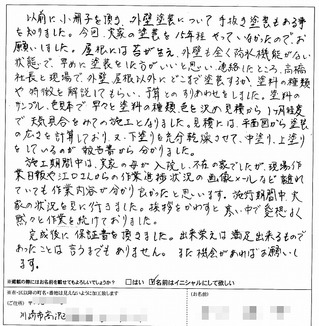 以前に小冊子を頂き、外壁塗装について手抜き塗装もある事
を知りました。今回、大家の塗装を15年程やっていなかったので、お
願いしました。屋根には苔が生え、外壁も全く防水機能がない
状態で、早めに塗装をした方がいいと思い連絡したところ、高橋
社長と現場で、外壁、屋根以外にどこまで塗装するか、塗料の種類
や特徴を解説してもらい、予算とのすりあわせをしました。塗料の
サンプル、色見本で早々と塗料の種類、色を決め見積から1ヶ月程度
で天気具合をみての施工となりました。見積には、平面図から塗装
の広さを計算しており、又、下塗りを充分乾燥させて、中塗り、上塗り
をしているのが報告書から分かりました。
施工期間中は、大家の母が入院し、不在の家でしたが、現場作
業日報や江口さんからの作業進捗状況の画像メールなど離れ
ていても作業内容が分かり良かったと思います。施行期間中、大
家の状況を見に行きました。挨拶をかわすと寒い中で愛想よく
黙々と作業を続けておりました。
完成後に保証書を頂きました。出来栄えは満足出来るもので
あったことは言うまでもありません。また機会があればお願いし
ます。
※掲載の際にはお名前を載せてもよろしいでしょうか？ □はい ☑名前はイニシャルにして欲しい
ご住所
お名前
川崎市高津区